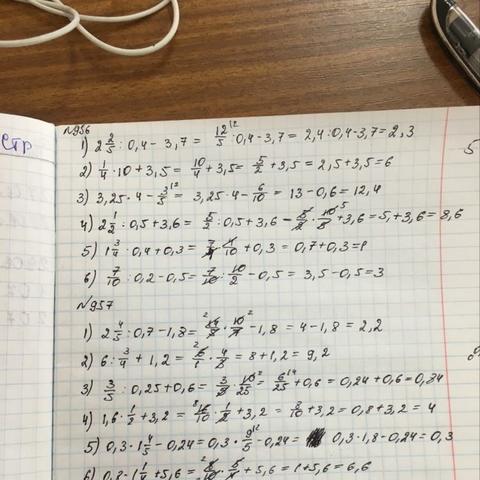 стр
№956
1) 2 2/5 : 0,4 - 3,7 = 12/5 ¹² : 0,4 - 3,7 = 2,4 : 0,4 - 3,7 = 2,3
2) 1/4 · 10 + 3,5 = 10/4 + 3,5 = 5/2 + 3,5 = 2,5 + 3,5 = 6
3) 3,25 · 4 - 3/5 ¹² = 3,25 · 4 - 6/10 = 13 - 0,6 = 12,4
4) 2 1/2 : 0,5 + 3,6 = 5/2 : 0,5 + 3,6 = 5/2 · 10/5 + 3,6 = 5 + 3,6 = 8,6
5) 1 3/4 : 0,4 + 0,3 = 7/4 · 4/10 + 0,3 = 0,7 + 0,3 = 1
6) 7/10 : 0,2 - 0,5 = 7/10 · 10/2 - 0,5 = 3,5 - 0,5 = 3
№957
1) 2 4/5 : 0,7 - 1,8 = 14/5 · 10/7 - 1,8 = 4 - 1,8 = 2,2
2) 6 : 3/4 + 1,2 = 6/1 · 4/3 = 8 + 1,2 = 9,2
3) 3/5 : 0,25 + 0,6 = 3/5 · 10/25 = 6/25 ¹⁴ + 0,6 = 0,24 + 0,6 = 0,84
4) 1,6 · 1/2 + 3,2 = 16/10 · 1/2 + 3,2 = 8/10 + 3,2 = 0,8 + 3,2 = 4
5) 0,3 · 1 4/5 - 0,24 = 0,3 · 9/5 ¹² - 0,24 = 0,3 · 1,8 - 0,24 = 0,3
6) 0,8 · 1 1/4 + 5,6 = 8/10 · 5/4 + 5,6 = 1 + 5,6 = 6,6
5